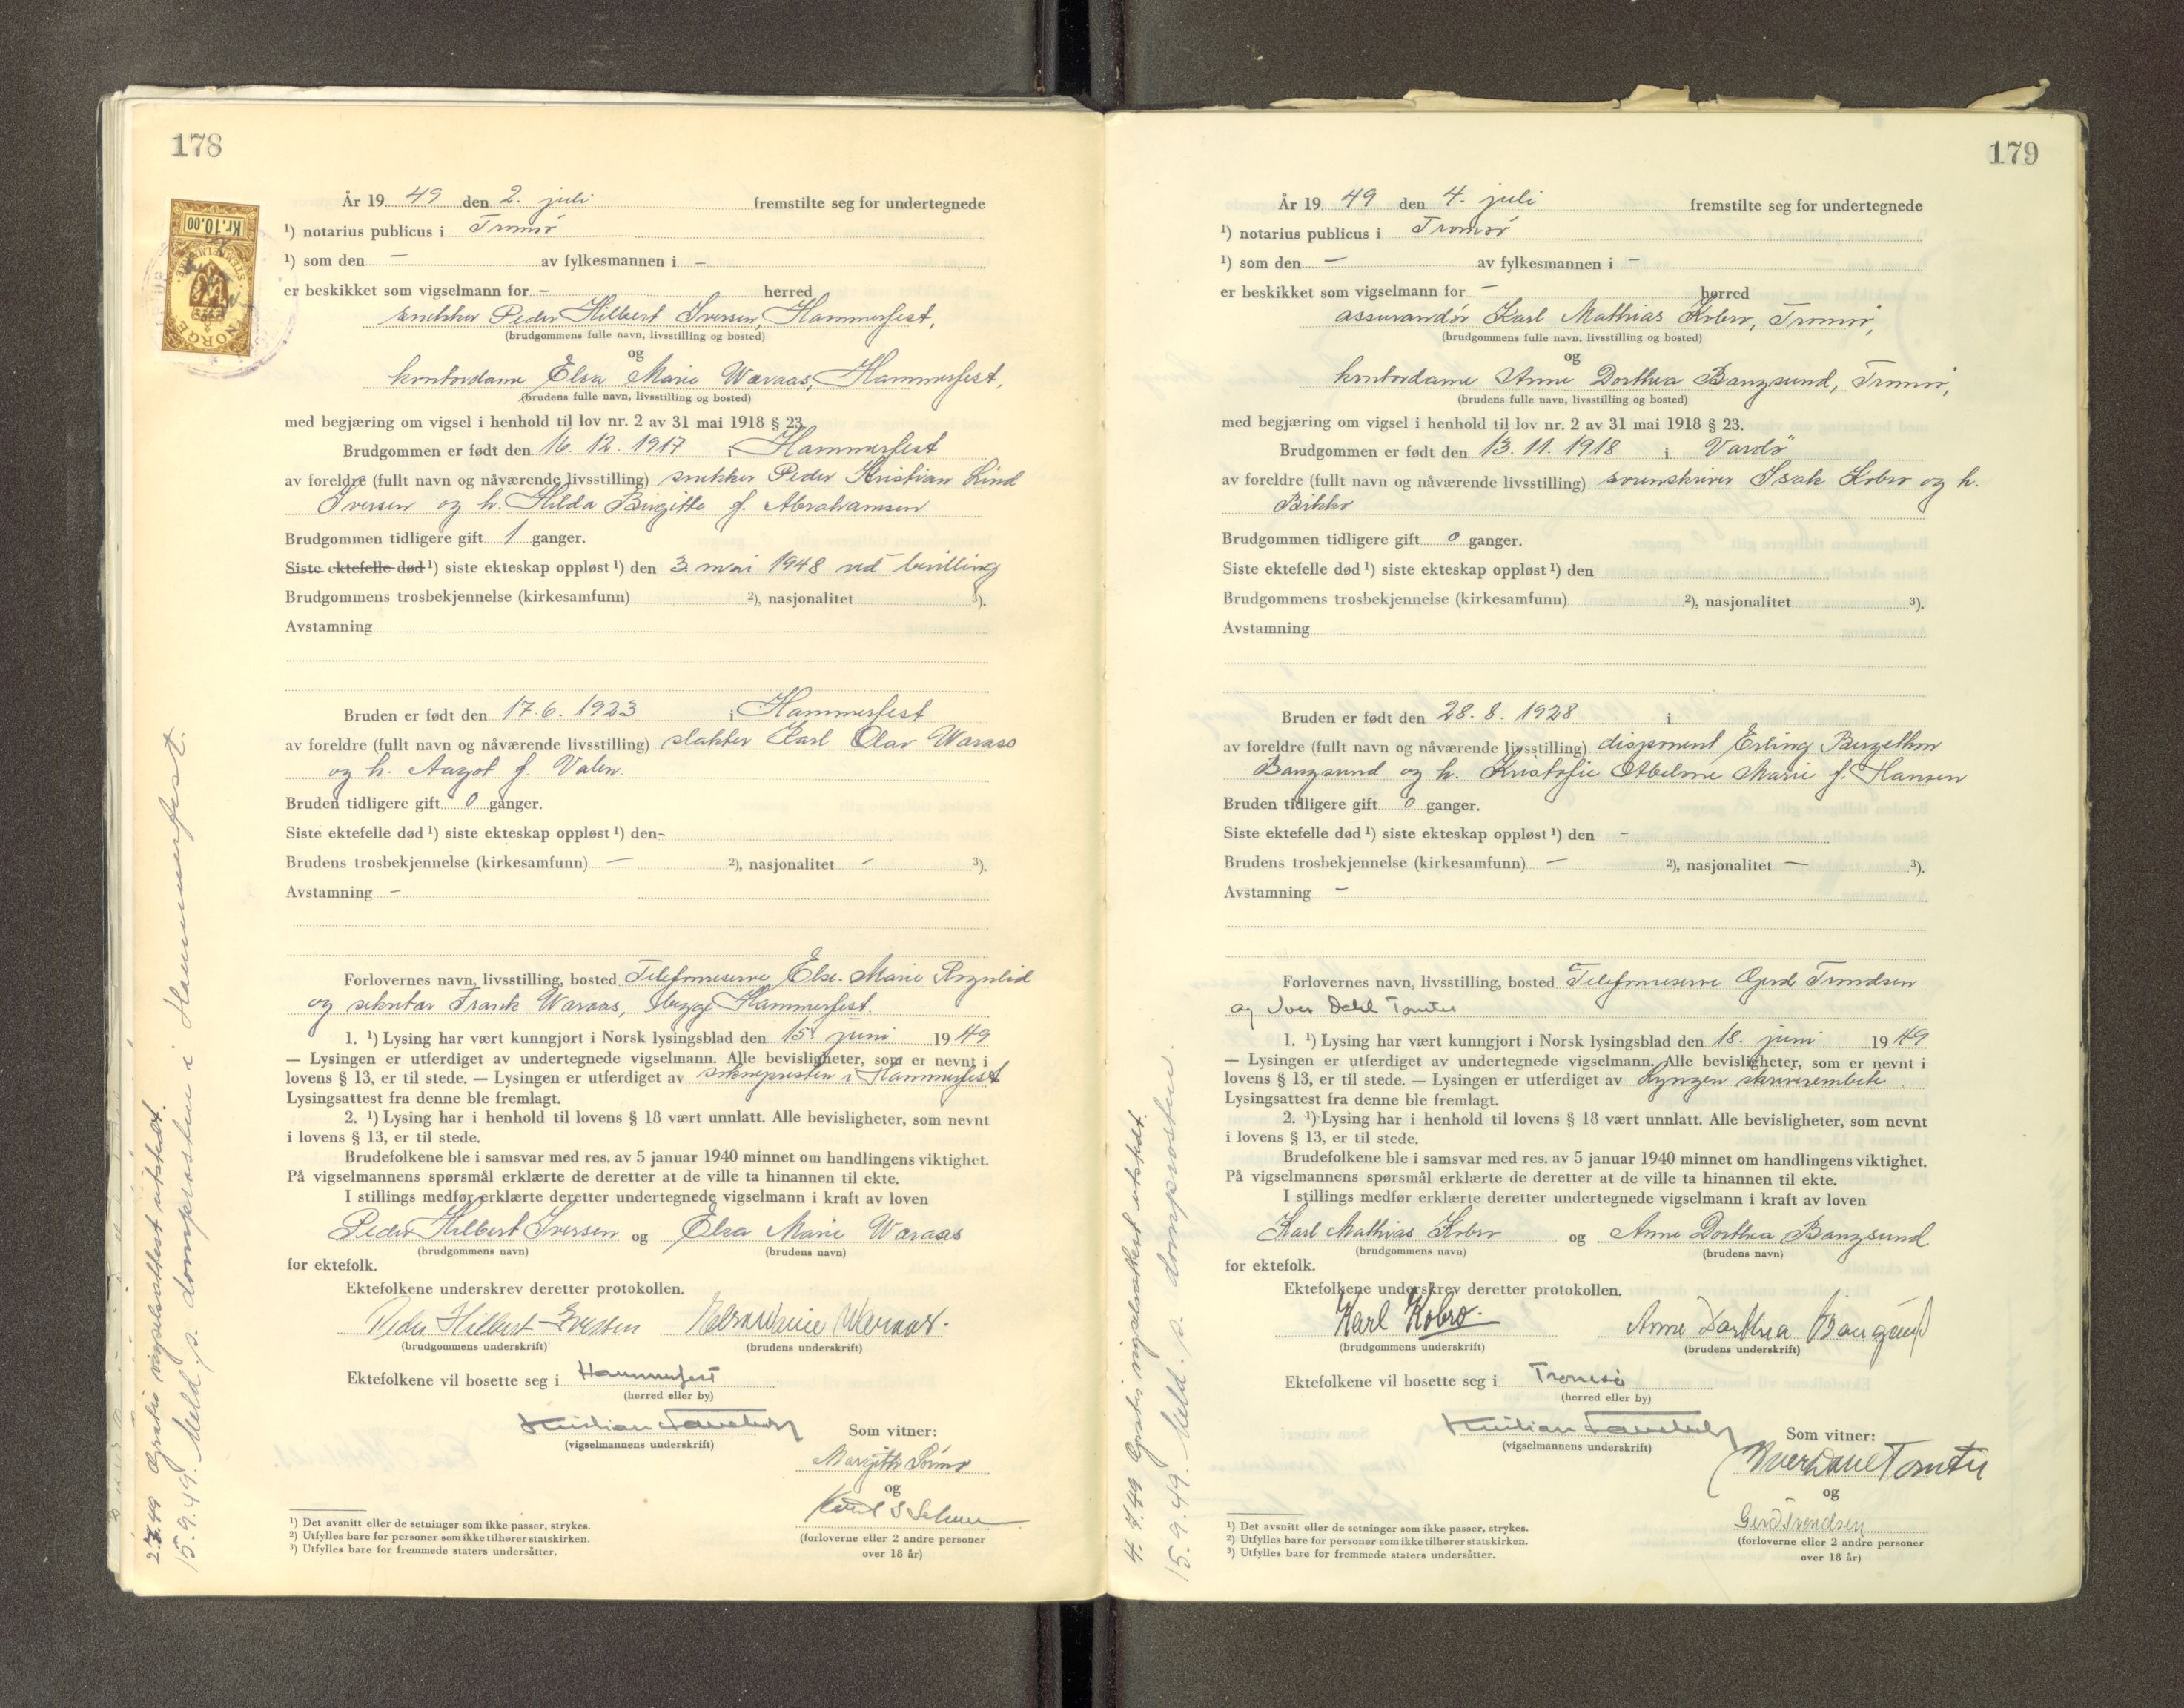 178
År 19 49 den 2. juli fremstilte seg for undertegnede
¹) notarius publicus i Tromsø
¹) som den – av fylkesmannen i –
er beskikket som vigselmann for – herred
snekker Peder Hilbert Iversen, Hammerfest,
(brudgommens fulle navn, livsstilling og bosted)
og
kontordame Elsa Marie Waraas, Hammerfest,
(brudens fulle navn, livsstilling og bosted)
med begjæring om vigsel i henhold til lov nr. 2 av 31 mai 1918 § 23.
Brudgommen er født den 16. 12. 1917 i Hammerfest
av foreldre (fullt navn og nåværende livsstilling) snekker Peder Kristian Lind
Iversen og h. Hilda Birgitte f. Abrahamsen
Brudgommen tidligere gift 1 ganger.
Siste ektefelle død ¹) siste ekteskap oppløst ¹) den 3. mai 1948 ved bevilling
Brudgommens trosbekjennelse (kirkesamfunn) ²), nasjonalitet ³).
Avstamning
Bruden er født den 17. 6. 1923 i Hammerfest
av foreldre (fullt navn og nåværende livsstilling) slakter Karl Olav Waraas
og h. Aagot f. Valen.
Bruden tidligere gift 0 ganger.
Siste ektefelle død ¹) siste ekteskap oppløst ¹) den –
Brudens trosbekjennelse (kirkesamfunn) – ²), nasjonalitet – ³).
Avstamning –
Forlovernes navn, livsstilling, bosted Telefonreserve Else-Marie
og sekretær Frank Waraas, begge Hammerfest.
1. ¹) Lysing har vært kunngjort i Norsk lysingsblad den 15. juni 19 49
— Lysingen er utferdiget av undertegnede vigselmann. Alle bevisligheter, som er nevnt i
lovens § 13, er til stede. — Lysingen er utferdiget av soknepresten i Hammerfest
Lysingsattest fra denne ble fremlagt.
2. ¹) Lysing har i henhold til lovens § 18 vært unnlatt. Alle bevisligheter, som nevnt
i lovens § 13, er til stede.
Brudefolkene ble i samsvar med res. av 5 januar 1940 minnet om handlingens viktighet.
På vigselmannens spørsmål erklærte de deretter at de ville ta hinannen til ekte.
I stillings medfør erklærte deretter undertegnede vigselmann i kraft av loven
Peder Hilbert Iversen og Elsa Marie Waraas
(brudgommens navn) (brudens navn)
for ektefolk.
Ektefolkene underskrev deretter protokollen.
Peder Hilbert Iversen Elsa Marie Waraas.
(brudgommens underskrift) (brudens underskrift)
Ektefolkene vil bosette seg i Hammerfest
(herred eller by)
Kristian
(vigselmannens underskrift)
Som vitner:
Margith
og
(forloverne eller 2 andre personer
over 18 år)
¹) Det avsnitt eller de setninger som ikke passer, strykes.
²) Utfylles bare for personer som ikke tilhører statskirken.
³) Utfylles bare for fremmede staters undersåtter.
2.7.49 Gratis vigselsattest utstedt.
15.9.49. Meld. s. domprosten i Hammerfest.
Kr. 10.00
STEMPELMERKE
NORGE
179
År 19 49 den 4. juli fremstilte seg for undertegnede
¹) notarius publicus i Tromsø
¹) som den – av fylkesmannen i –
er beskikket som vigselmann for – herred
assurandør Karl Mathias Kobro, Tromsø,
(brudgommens fulle navn, livsstilling og bosted)
og
kontordame Anne Dorthea Bangsund, Tromsø,
(brudens fulle navn, livsstilling og bosted)
med begjæring om vigsel i henhold til lov nr. 2 av 31 mai 1918 § 23.
Brudgommen er født den 13. 11. 1918 i Vardö
av foreldre (fullt navn og nåværende livsstilling) sorenskriver Isak Kobro og h.
Brudgommen tidligere gift 0 ganger.
Siste ektefelle død ¹) siste ekteskap oppløst ¹) den
Brudgommens trosbekjennelse (kirkesamfunn) ²), nasjonalitet ³).
Avstamning
Bruden er født den 28. 8. 1928 i
av foreldre (fullt navn og nåværende livsstilling) disponent Erling
Bangsund og h. Kristofie Abeline Marie f. Hansen
Bruden tidligere gift 0 ganger.
Siste ektefelle død ¹) siste ekteskap oppløst ¹) den –
Brudens trosbekjennelse (kirkesamfunn) – ²), nasjonalitet – ³).
Avstamning –
Forlovernes navn, livsstilling, bosted Telefonreserve Gerd
og Iver Dahl Tomter
1. ¹) Lysing har vært kunngjort i Norsk lysingsblad den 18. juni 19 49
— Lysingen er utferdiget av undertegnede vigselmann. Alle bevisligheter, som er nevnt i
lovens § 13, er til stede. — Lysingen er utferdiget av Lyngen skriverembete
Lysingsattest fra denne ble fremlagt.
2. ¹) Lysing har i henhold til lovens § 18 vært unnlatt. Alle bevisligheter, som nevnt
i lovens § 13, er til stede.
Brudefolkene ble i samsvar med res. av 5 januar 1940 minnet om handlingens viktighet.
På vigselmannens spørsmål erklærte de deretter at de ville ta hinannen til ekte.
I stillings medfør erklærte deretter undertegnede vigselmann i kraft av loven
Karl Mathias Kobro og Anne Dorthea Bangsund
(brudgommens navn) (brudens navn)
for ektefolk.
Ektefolkene underskrev deretter protokollen.
Karl Kobro. Anne Dorthea Bangsund
(brudgommens underskrift) (brudens underskrift)
Ektefolkene vil bosette seg i Tromsø
(herred eller by)
Kristian
(vigselmannens underskrift)
Som vitner:
Iver Dahl Tomter
og
Gerd
(forloverne eller 2 andre personer
over 18 år)
¹) Det avsnitt eller de setninger som ikke passer, strykes.
²) Utfylles bare for personer som ikke tilhører statskirken.
³) Utfylles bare for fremmede staters undersåtter.
4. 7.49 Gratis vigselsattest utstedt.
15.9.49. Meld. s. domprosten.